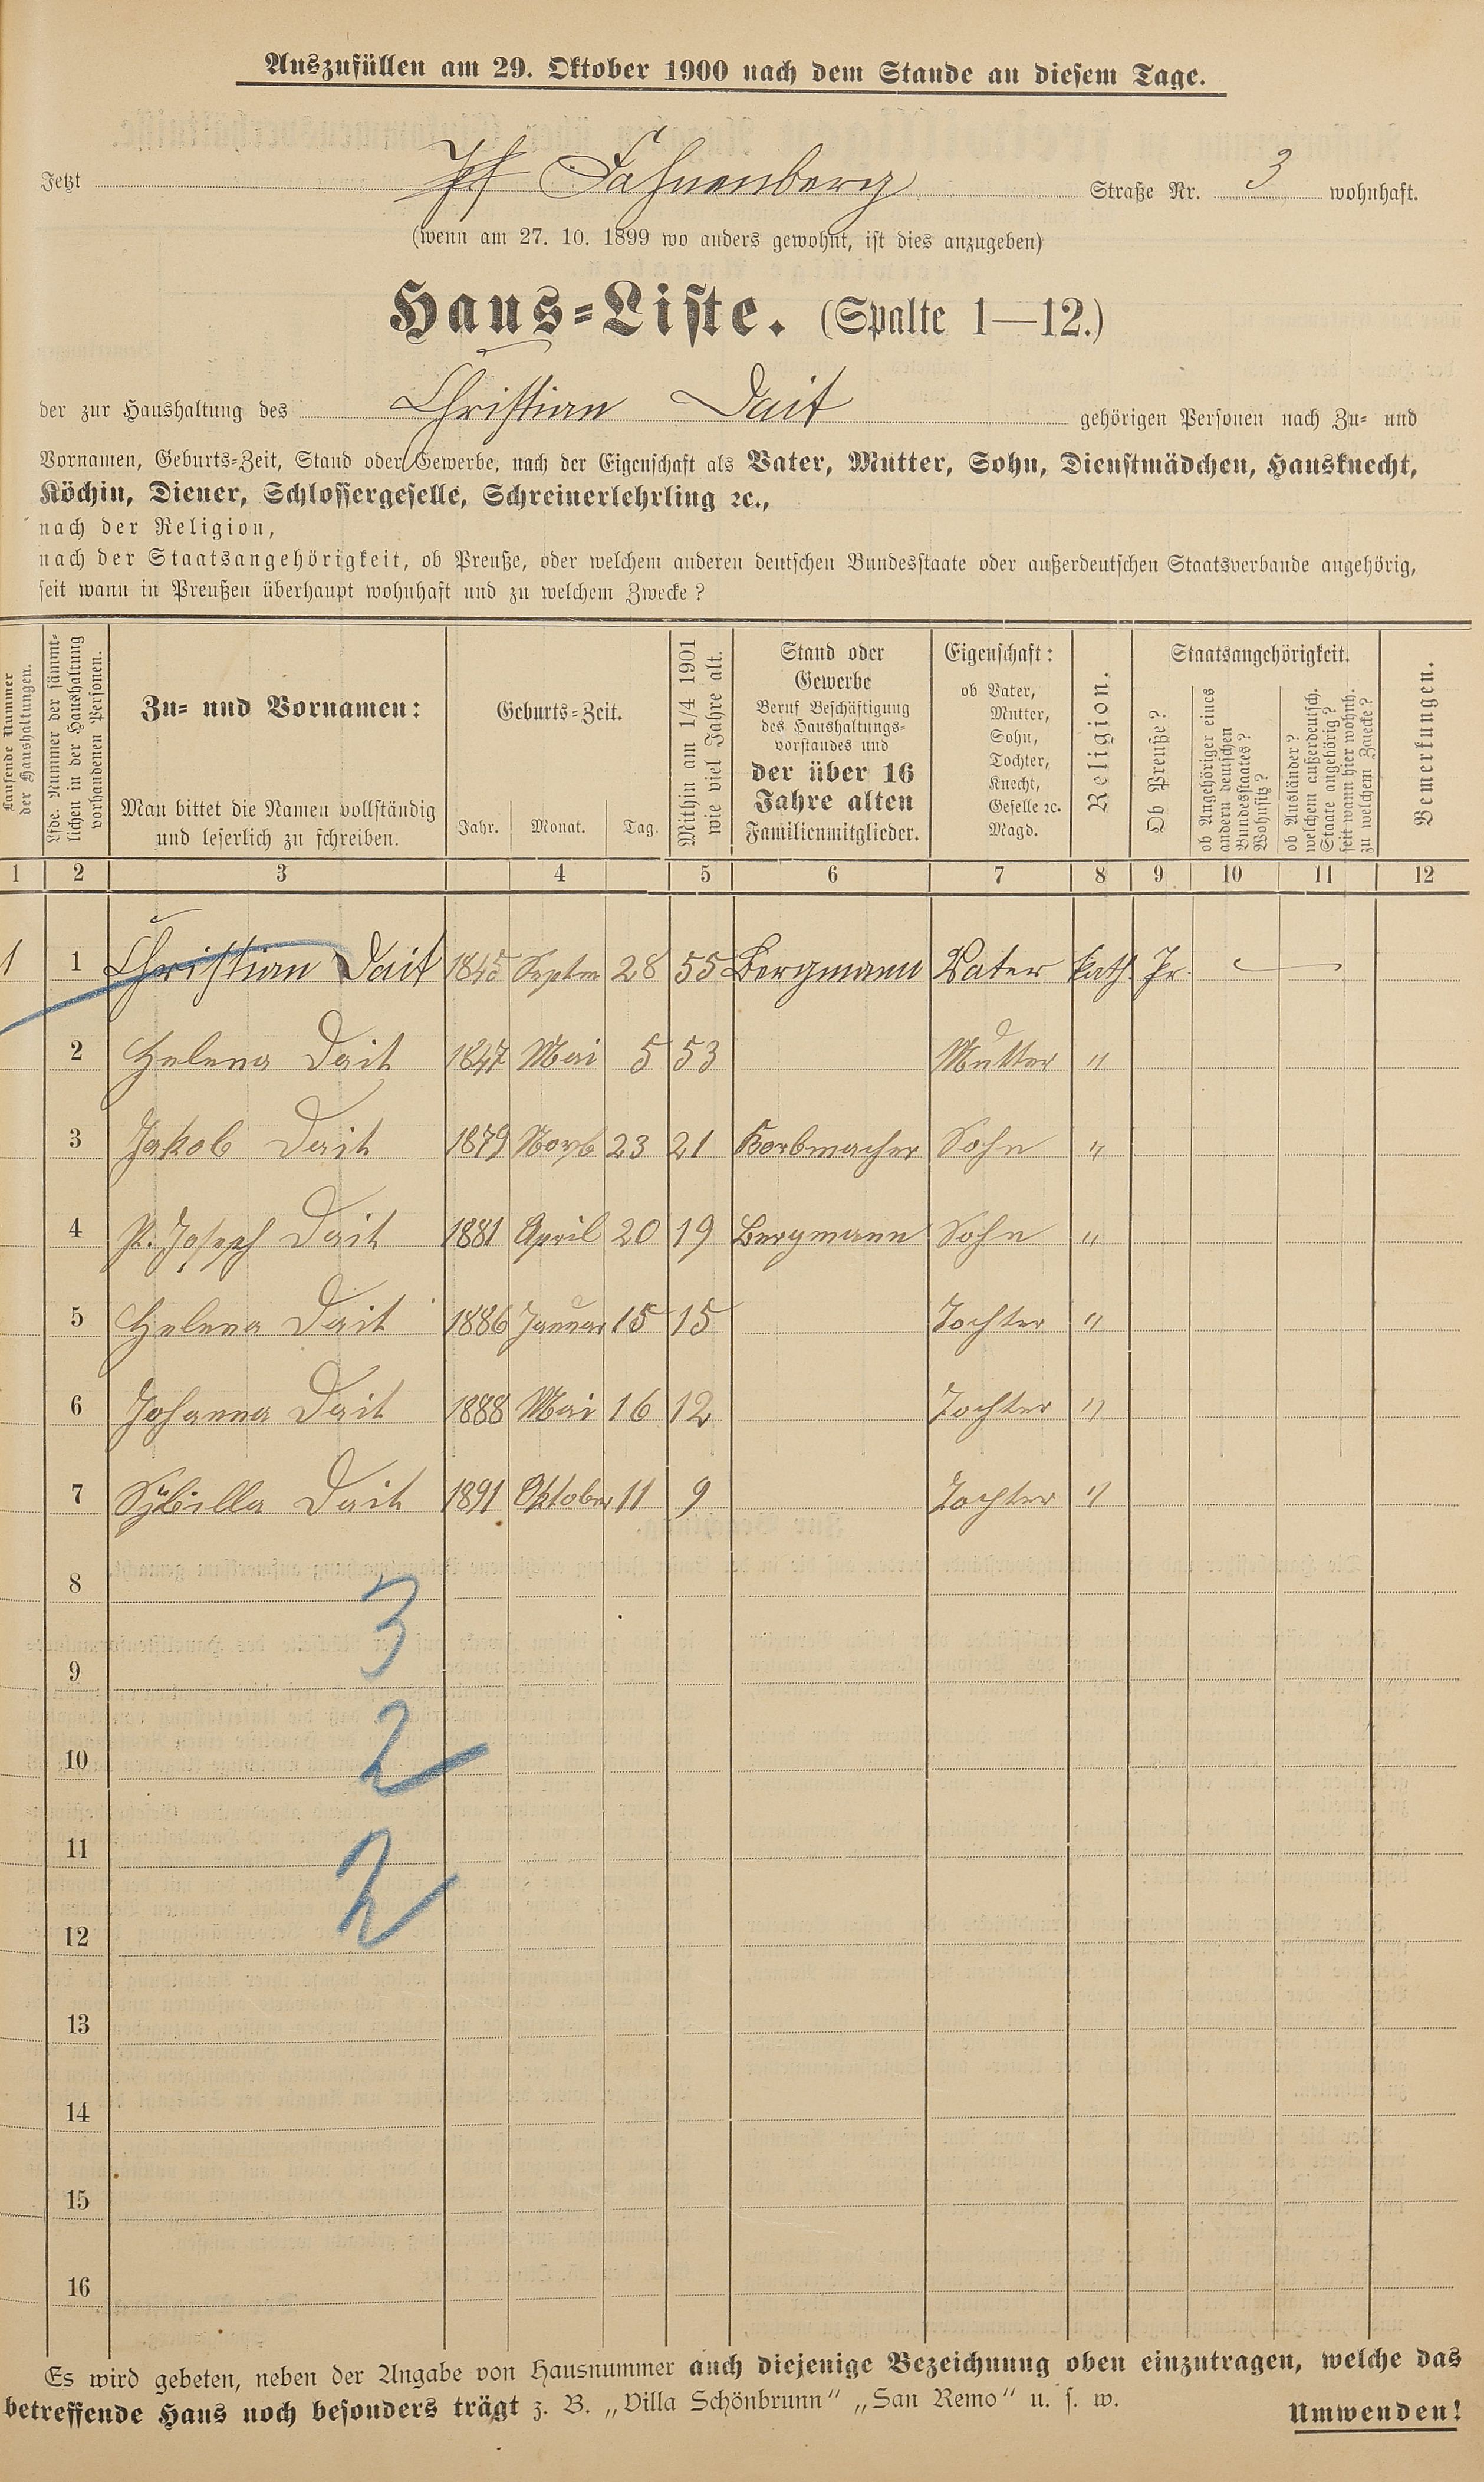 Auszufüllen am 29. Oktober 1900 nach dem Stande an diesem Tage.
Jetzt Fahnenberg Straße Nr. 3 wohnhaft.
(wenn am 27. 10. 1899 wo anders gewohnt, ist dies anzugeben)
Haus-Liste. (Spalte 1—12.)
der zur Haushaltung des Christian Dait gehörigen Personen nach Zu- und
Vornamen, Geburts-Zeit, Stand oder Gewerbe, nach der Eigenschaft als Vater, Mutter, Sohn, Dienstmädchen, Hausknecht,
Köchin, Diener, Schlossergeselle, Schreinerlehrling ꝛc.,
nach der Religion,
nach der Staatsangehörigkeit, ob Preuße, oder welchem anderen deutschen Bundesstaate oder außerdeutschen Staatsverbande angehörig,
seit wann in Preußen überhaupt wohnhaft und zu welchem Zwecke?
Laufende Nummer
der Haushaltungen.
Lfde. Nummer der sämmt-
lichen in der Haushaltung
vorhandenen Personen.
Zu- und Vornamen:
Man bittet die Namen vollständig
und leserlich zu schreiben.
Geburts-Zeit.
Jahr. Monat. Tag.
Mithin am 1/4 1901
wie viel Jahre alt.
Stand oder
Gewerbe
Beruf Beschäftigung
des Haushaltungs-
vorstandes und
der über 16
Jahre alten
Familienmitglieder.
Eigenschaft:
ob Vater,
Mutter,
Sohn,
Tochter,
Knecht,
Geselle ꝛc.
Magd.
Religion.
Staatsangehörigkeit.
Ob Preuße?
ob Angehöriger eines
andern deutschen
Bundesstaates?
Wohnsitz?
ob Ausländer?
welchem außerdeutsch.
Staate angehörig?
seit wann hier wohnh.
zu welchem Zwecke?
Bemerkungen.
1 2 3 4 5 6 7 8 9 10 11 12
1 1 Christian Dait 1845 Septm 28 55 Bergmann Vater kath. Pr.
2 Helena Dait 1847 Mai 5 53 Mutter "
3 Jakob Dait 1879 Novb 23 21 Korbmacher Sohn "
4 P. Joseph Dait 1881 April 20 19 Bergmann Sohn "
5 Helena Dait 1886 Januar 15 15 Tochter "
6 Johanna Dait 1888 Mai 16 12 Tochter "
7 Sybilla Dait 1891 Oktober 11 9 Tochter "
8
3
9
10
2
11
2
12
13
14
15
16
Es wird gebeten, neben der Angabe von Hausnummer auch diejenige Bezeichnung oben einzutragen, welche das
betreffende Haus noch besonders trägt z. B. „Villa Schönbrunn“ „San Remo“ u. s. w.
Umwenden!